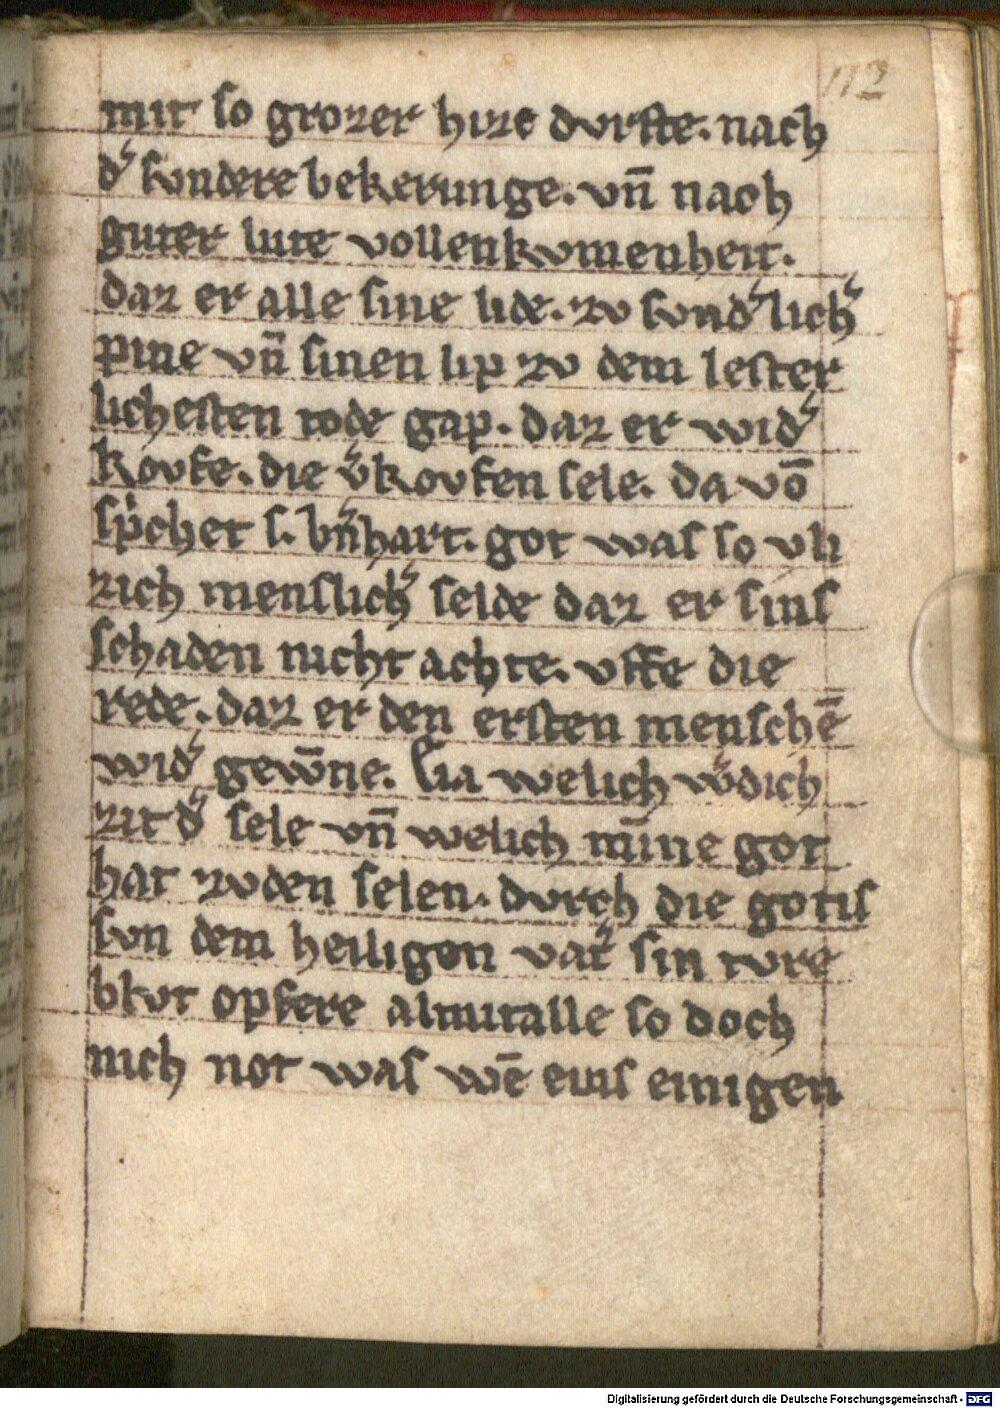 112
mit so grozer hize dvrste. nach
d̾ svndere bekerunge. vn̄ nach
guter lute vollenkvmenheit.
daz er alle sine lide. zv svnd̾lich̾
pine vn̄ sinen lip zv dem lester
lichesten tode gap. daz er wid̾
kovfte. die v̾kovften sele. da vō
sp̍chet s. bn̄hart. got was so vli
zich menslich̾ selde daz er sins
schaden nicht achte. vffe die
rede. daz er den ersten menschē
wid̾ gewn̄ne. Eia welich w̾dich
zit d̾ sele vn̄ welich min̄ne got
hat zv den selen. dvrch die gotis
svn dem heiligen vat̾ sin tvre
blvt opfere almitalle so doch
nich not was wē eins einigen
Digitalisierung gefördert durch die Deutsche Forschungsgemeinschaft - DFG